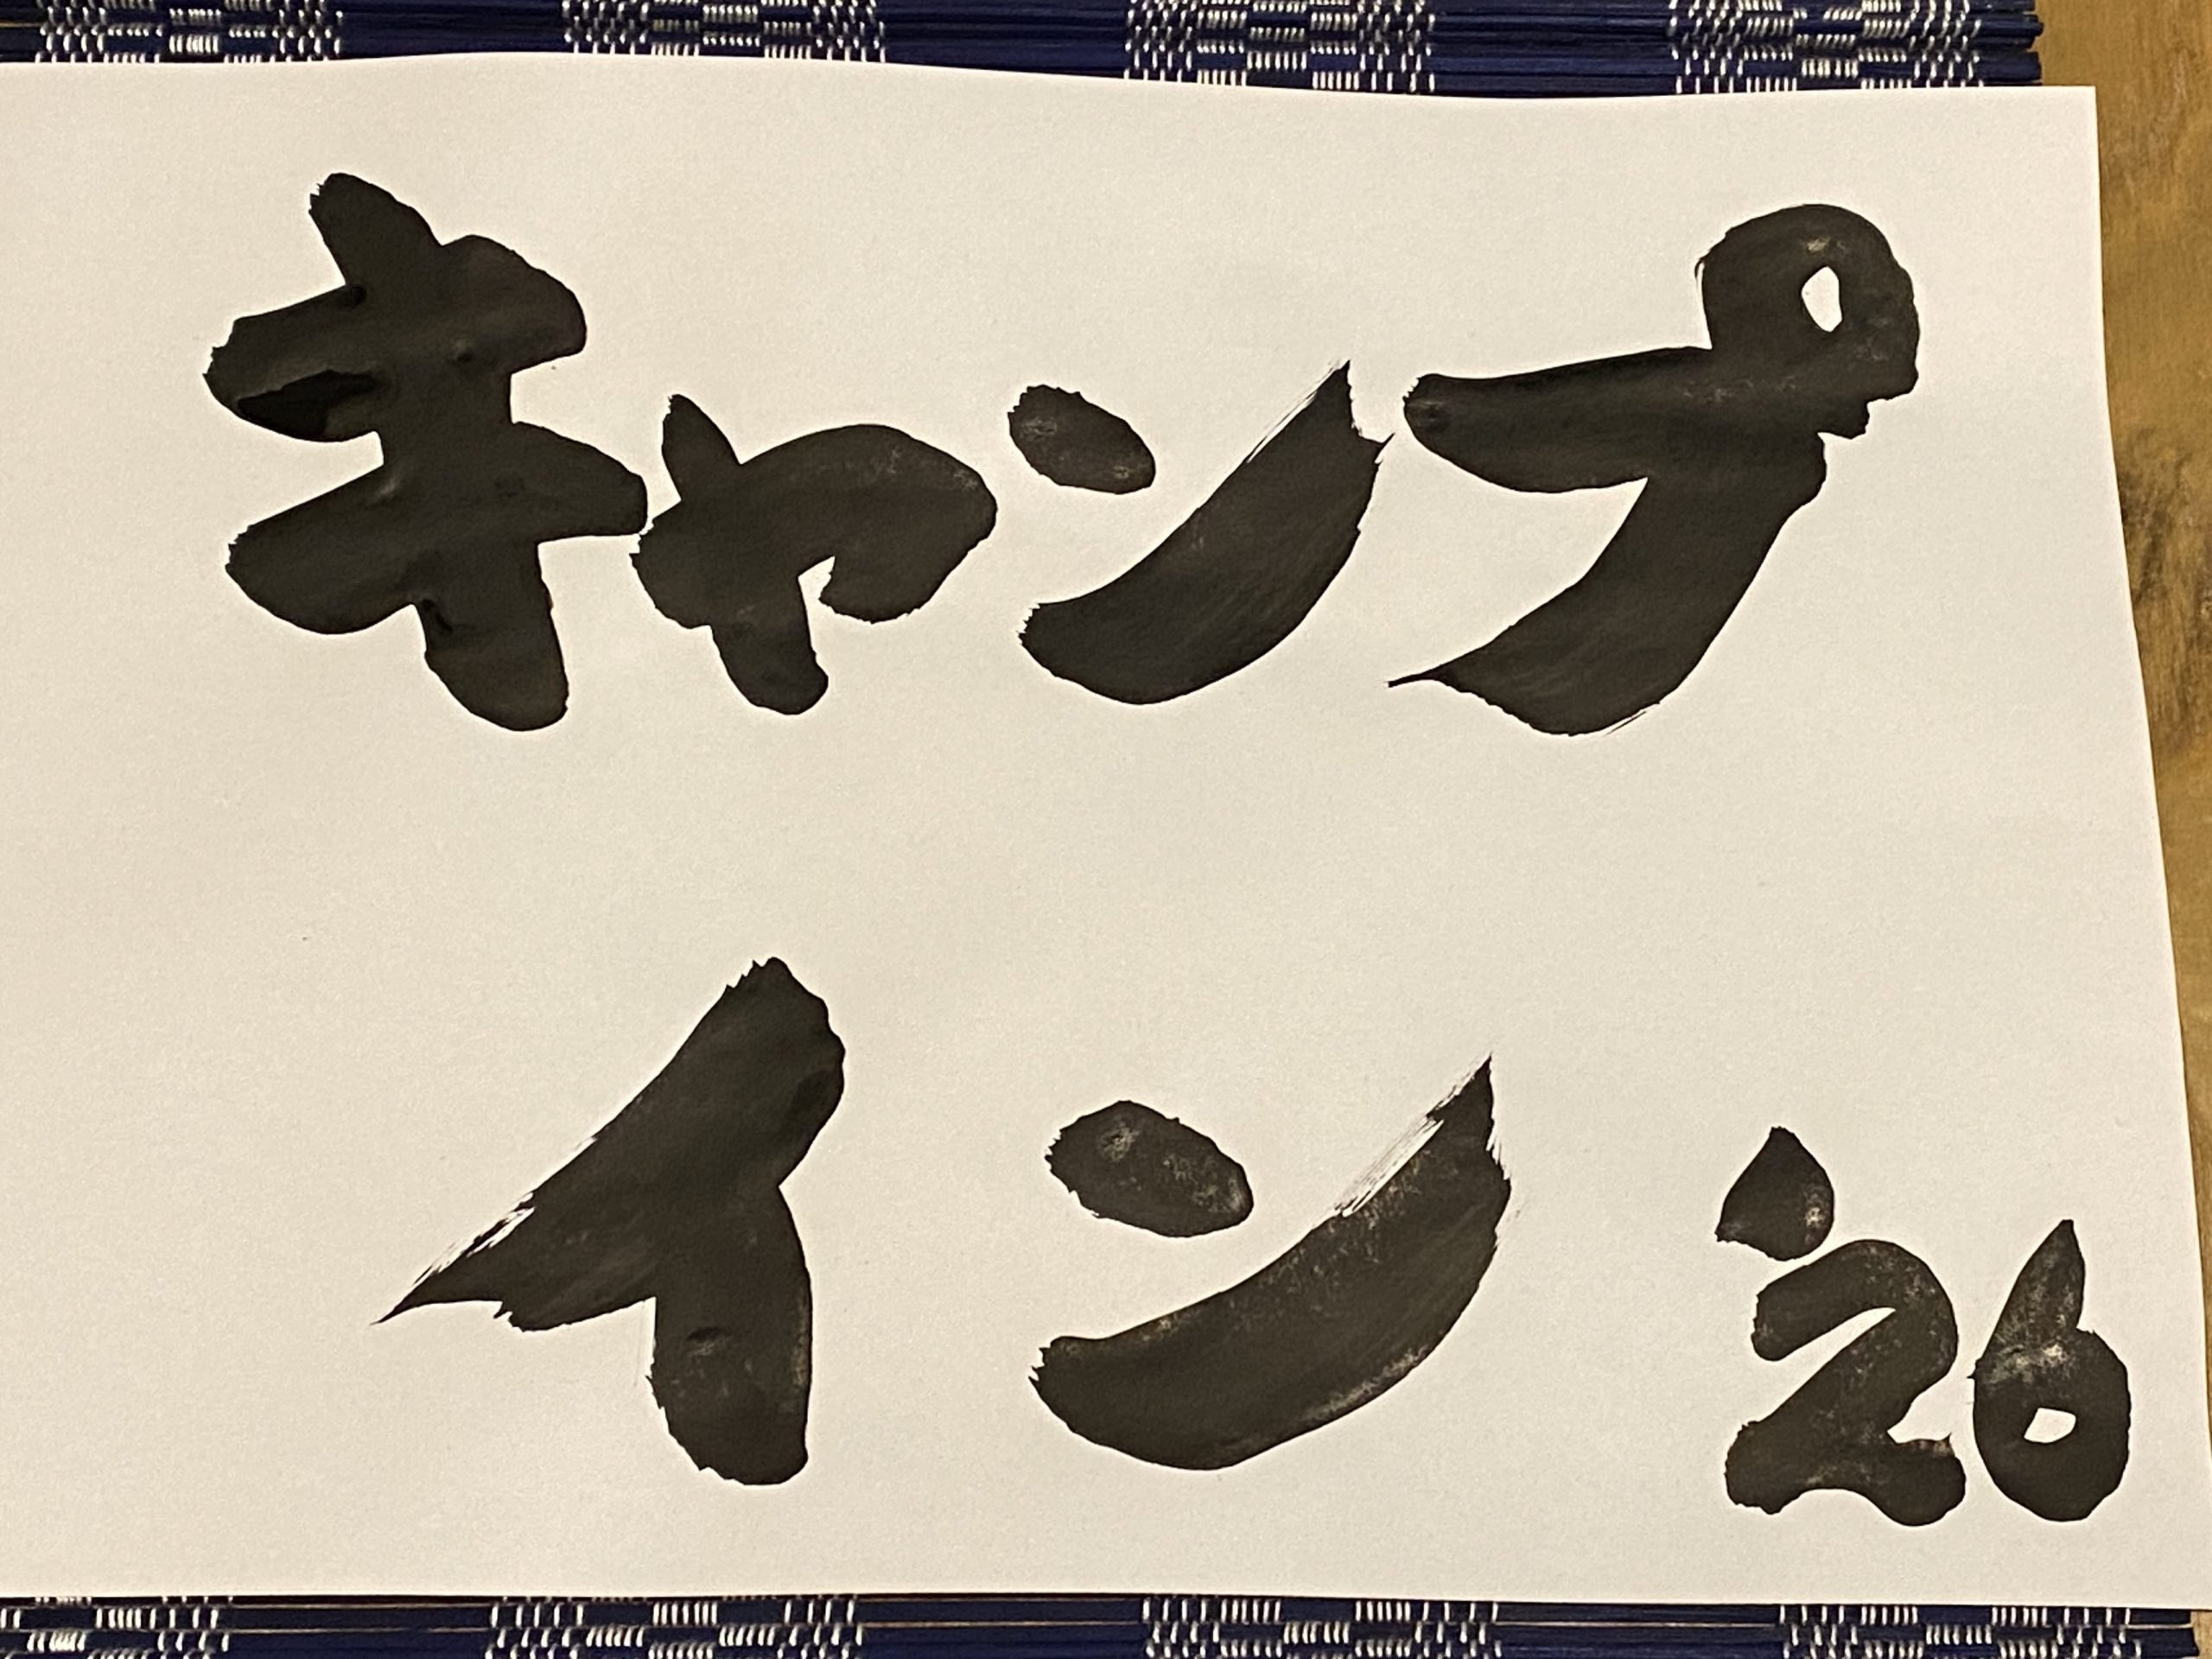 キャンプ
イン '26